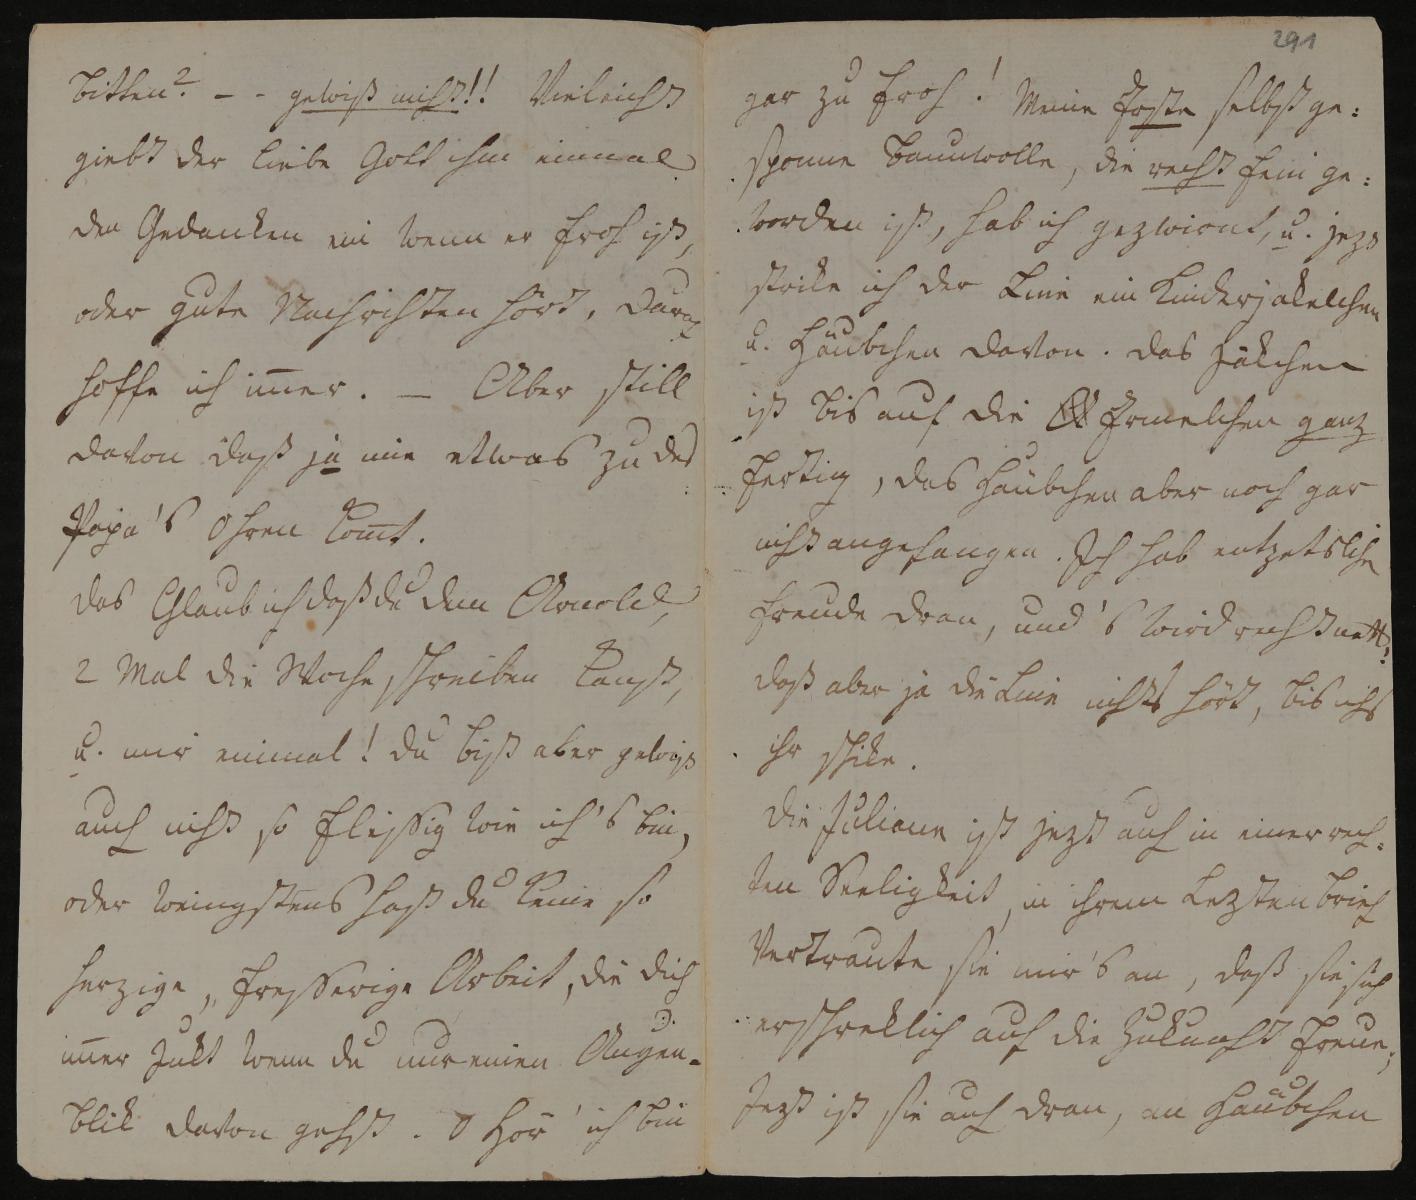 bitten? – - gewiß nicht!! Vieleicht
giebt der liebe Gott ihm einmal
den Gedanken ein wenn er froh ist,
oder gute Nachrichten hört, darauf
hoffe ich im̄er. – Aber still
davon daß ja nie etwas zu des
Papa's Ohren kom̄t.
das Glaub ich daß du dem Arnold,
2 Mal die Woche schreiben kanst,
u. mir einmal! du bist aber gewiß
auch nicht so fleißig wie ich's bin,
oder weingstens hast du keine so
herzige, Arbeit, die dich
im̄er zukt wenn du nur einen Augen-
blik davon gehst. O Hör' ich bin
291
gar zu froh! Meine erste selbst ge:
sponne Baumwolle, die recht fein ge:
worden ist, hab ich gezwirnt, u. jezt
strike ich der Line ein Kinderjäkelchen
u. Häubchen davon. das Jäkchen
ist bis auf die Ermelchen ganz
fertig, das Häubchen aber noch gar
nicht angefangen. Ich hab entzetsliche
freude dran, und's wird recht nett;
daß aber ja die Line nichts hört, bis ichs
ihr schike.
die Juliane ist jezt auch in einer rech-
ten Seeligkeit, in ihrem Lezten brief
Vertraute sie mir's an, daß sie sich
erschreklich auf die Zukunft freue;
Jezt ist sie auch dran, an Häubchen